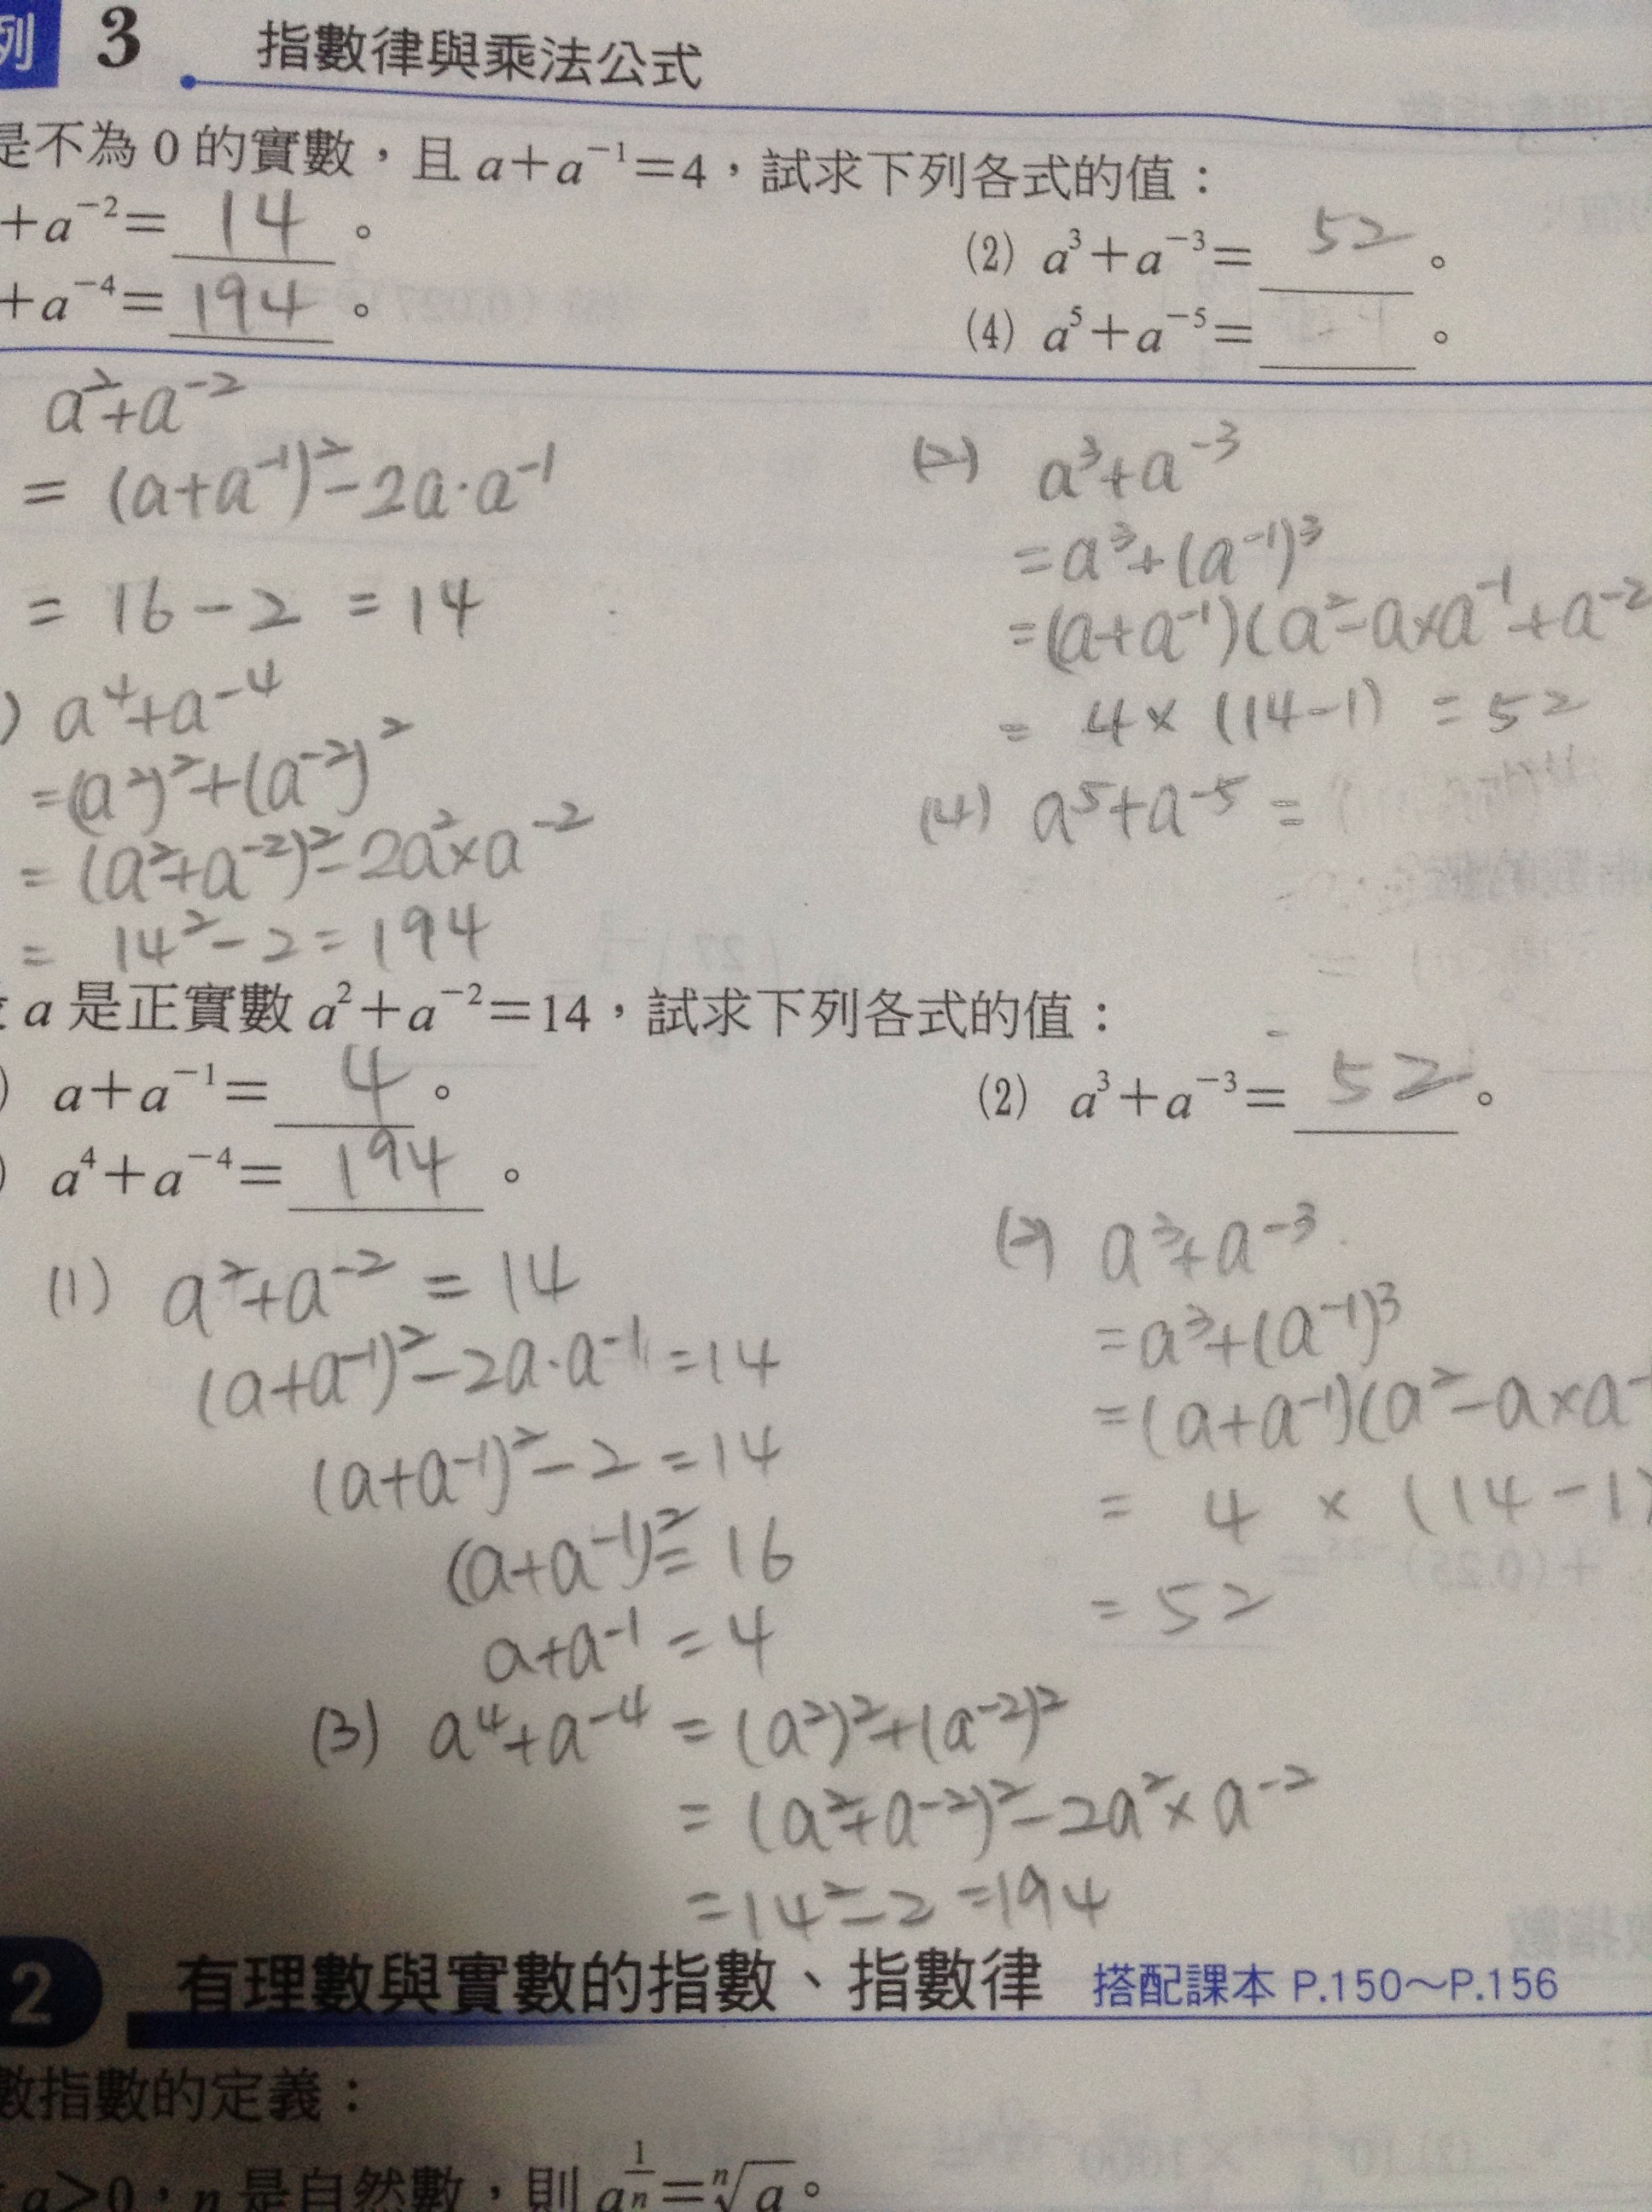 列 3 指數律與乘法公式
是不為 0 的實數，且 a+a⁻¹=4，試求下列各式的值：
+a⁻²= 14 。
(2) a³+a⁻³= 52 。
+a⁻⁴= 194 。
(4) a⁵+a⁻⁵= 。
a²+a⁻²
= (a+a⁻¹)²-2a·a⁻¹
= 16-2 =14
) a⁴+a⁻⁴
=(a²)²+(a⁻²)²
= (a²+a⁻²)²-2a²×a⁻²
= 14²-2=194
(2) a³+a⁻³
=a³+(a⁻¹)³
=(a+a⁻¹)(a²-a×a⁻¹+a⁻²
= 4×(14-1) =52
(4) a⁵+a⁻⁵ =
a 是正實數 a²+a⁻²=14，試求下列各式的值：
) a+a⁻¹= 4 。
(2) a³+a⁻³= 52 。
) a⁴+a⁻⁴= 194 。
(1) a²+a⁻² = 14
(a+a⁻¹)²-2a·a⁻¹=14
(a+a⁻¹)²-2=14
(a+a⁻¹)²=16
a+a⁻¹ =4
(2) a³+a⁻³
=a³+(a⁻¹)³
=(a+a⁻¹)(a²-a×a⁻
= 4 ×(14-1)
=52
(3) a⁴+a⁻⁴ = (a²)²+(a⁻²)²
= (a²+a⁻²)²-2a²×a⁻²
=14²-2=194
2 有理數與實數的指數、指數律 搭配課本 P.150～P.156
數指數的定義：
a>0，n 是自然數，則 a^(1/n)=ⁿ√a。